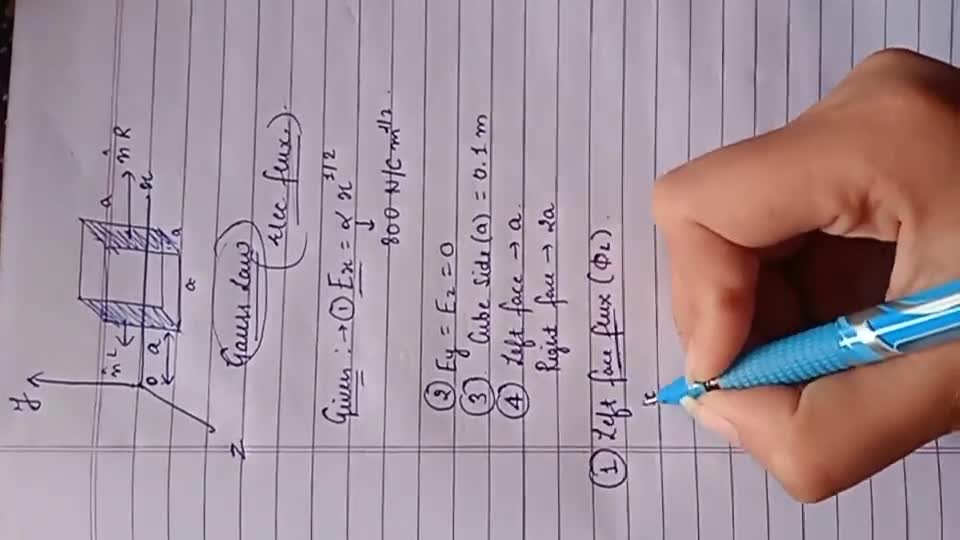 y
n̂L
n̂R
a
x
0
a
a
a
z
Gauss Law
Elec flux.
Given :→ ① Ex = α x^1/2
800 N/C m^1/2.
② Ey = Ez = 0
③ Cube side (a) = 0.1 m
④ Left face → a.
Right face → 2a
① Left face flux (ΦL)